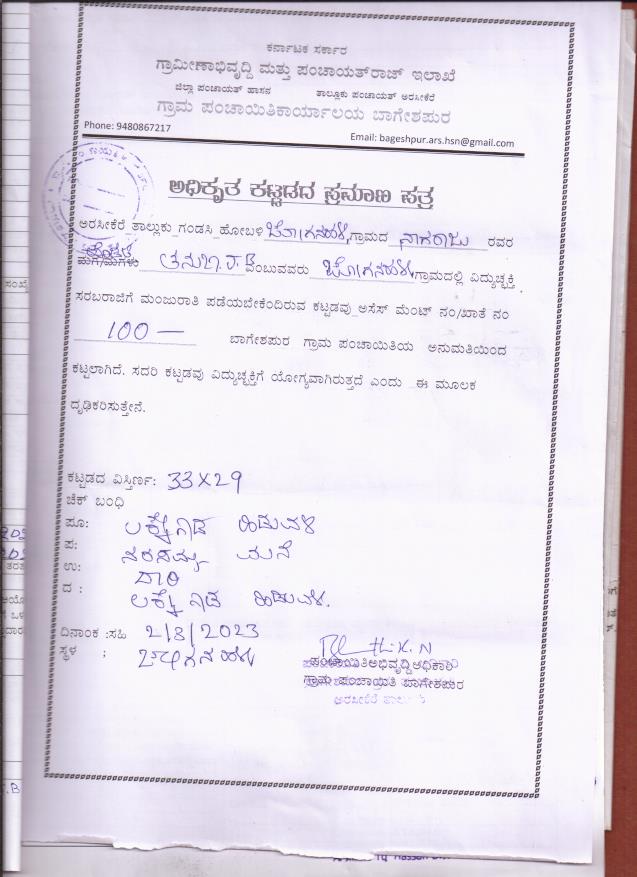 ಕರ್ನಾಟಕ ಸರ್ಕಾರ
ಗ್ರಾಮೀಣಾಭಿವೃದ್ಧಿ ಮತ್ತು ಪಂಚಾಯತ್‌ರಾಜ್ ಇಲಾಖೆ
ಜಿಲ್ಲಾ ಪಂಚಾಯತ್ ಹಾಸನ ತಾಲ್ಲೂಕು ಪಂಚಾಯತ್ ಅರಸೀಕೆರೆ
ಗ್ರಾಮ ಪಂಚಾಯಿತಿಕಾರ್ಯಾಲಯ ಬಾಗೇಶಪುರ
Phone: 9480867217 Email: bageshpur.ars.hsn@gmail.com
ಅಧಿಕೃತ ಕಟ್ಟಡದ ಪ್ರಮಾಣ ಪತ್ರ
ಅರಸೀಕೆರೆ ತಾಲ್ಲುಕು ಗಂಡಸಿ ಹೋಬಳಿ ಬೋಗನಹಳ್ಳಿ ಗ್ರಾಮದ ನಾಗರಾಜು ರವರ
ಮಗ/ಮಗಳು ಎಂಬುವವರು ಬೋಗನಹಳ್ಳಿ ಗ್ರಾಮದಲ್ಲಿ ವಿದ್ಯುಚ್ಛಕ್ತಿ
ಸರಬರಾಜಿಗೆ ಮಂಜುರಾತಿ ಪಡೆಯಬೇಕೆಂದಿರುವ ಕಟ್ಟಡವು ಅಸೆಸ್ ಮೆಂಟ್ ನಂ/ಖಾತೆ ನಂ
100 — ಬಾಗೇಶಪುರ ಗ್ರಾಮ ಪಂಚಾಯಿತಿಯ ಅನುಮತಿಯಿಂದ
ಕಟ್ಟಲಾಗಿದೆ. ಸದರಿ ಕಟ್ಟಡವು ವಿದ್ಯುಚ್ಛಕ್ತಿಗೆ ಯೋಗ್ಯವಾಗಿರುತ್ತದೆ ಎಂದು ಈ ಮೂಲಕ
ದೃಢಿಕರಿಸುತ್ತೇನೆ.
ಕಟ್ಟಡದ ವಿಸ್ತಿರ್ಣ: 33X29
ಚೆಕ್ ಬಂಧಿ
ಪೂ: ಹಿಡುವಳಿ
ಪ: ಮನೆ
ಉ: ದಾರಿ
ದ : ಹಿಡುವಳಿ.
ದಿನಾಂಕ :ಸಹಿ 2/8/2023
ಸ್ಥಳ ; ಬೋಗನಹಳ್ಳಿ
ಪಂಚಾಯಿತಿಅಭಿವೃದ್ದಿಅಧಿಕಾರಿ
ಗ್ರಾಮ ಪಂಚಾಯಿತಿ ಬಾಗೇಶಪುರ